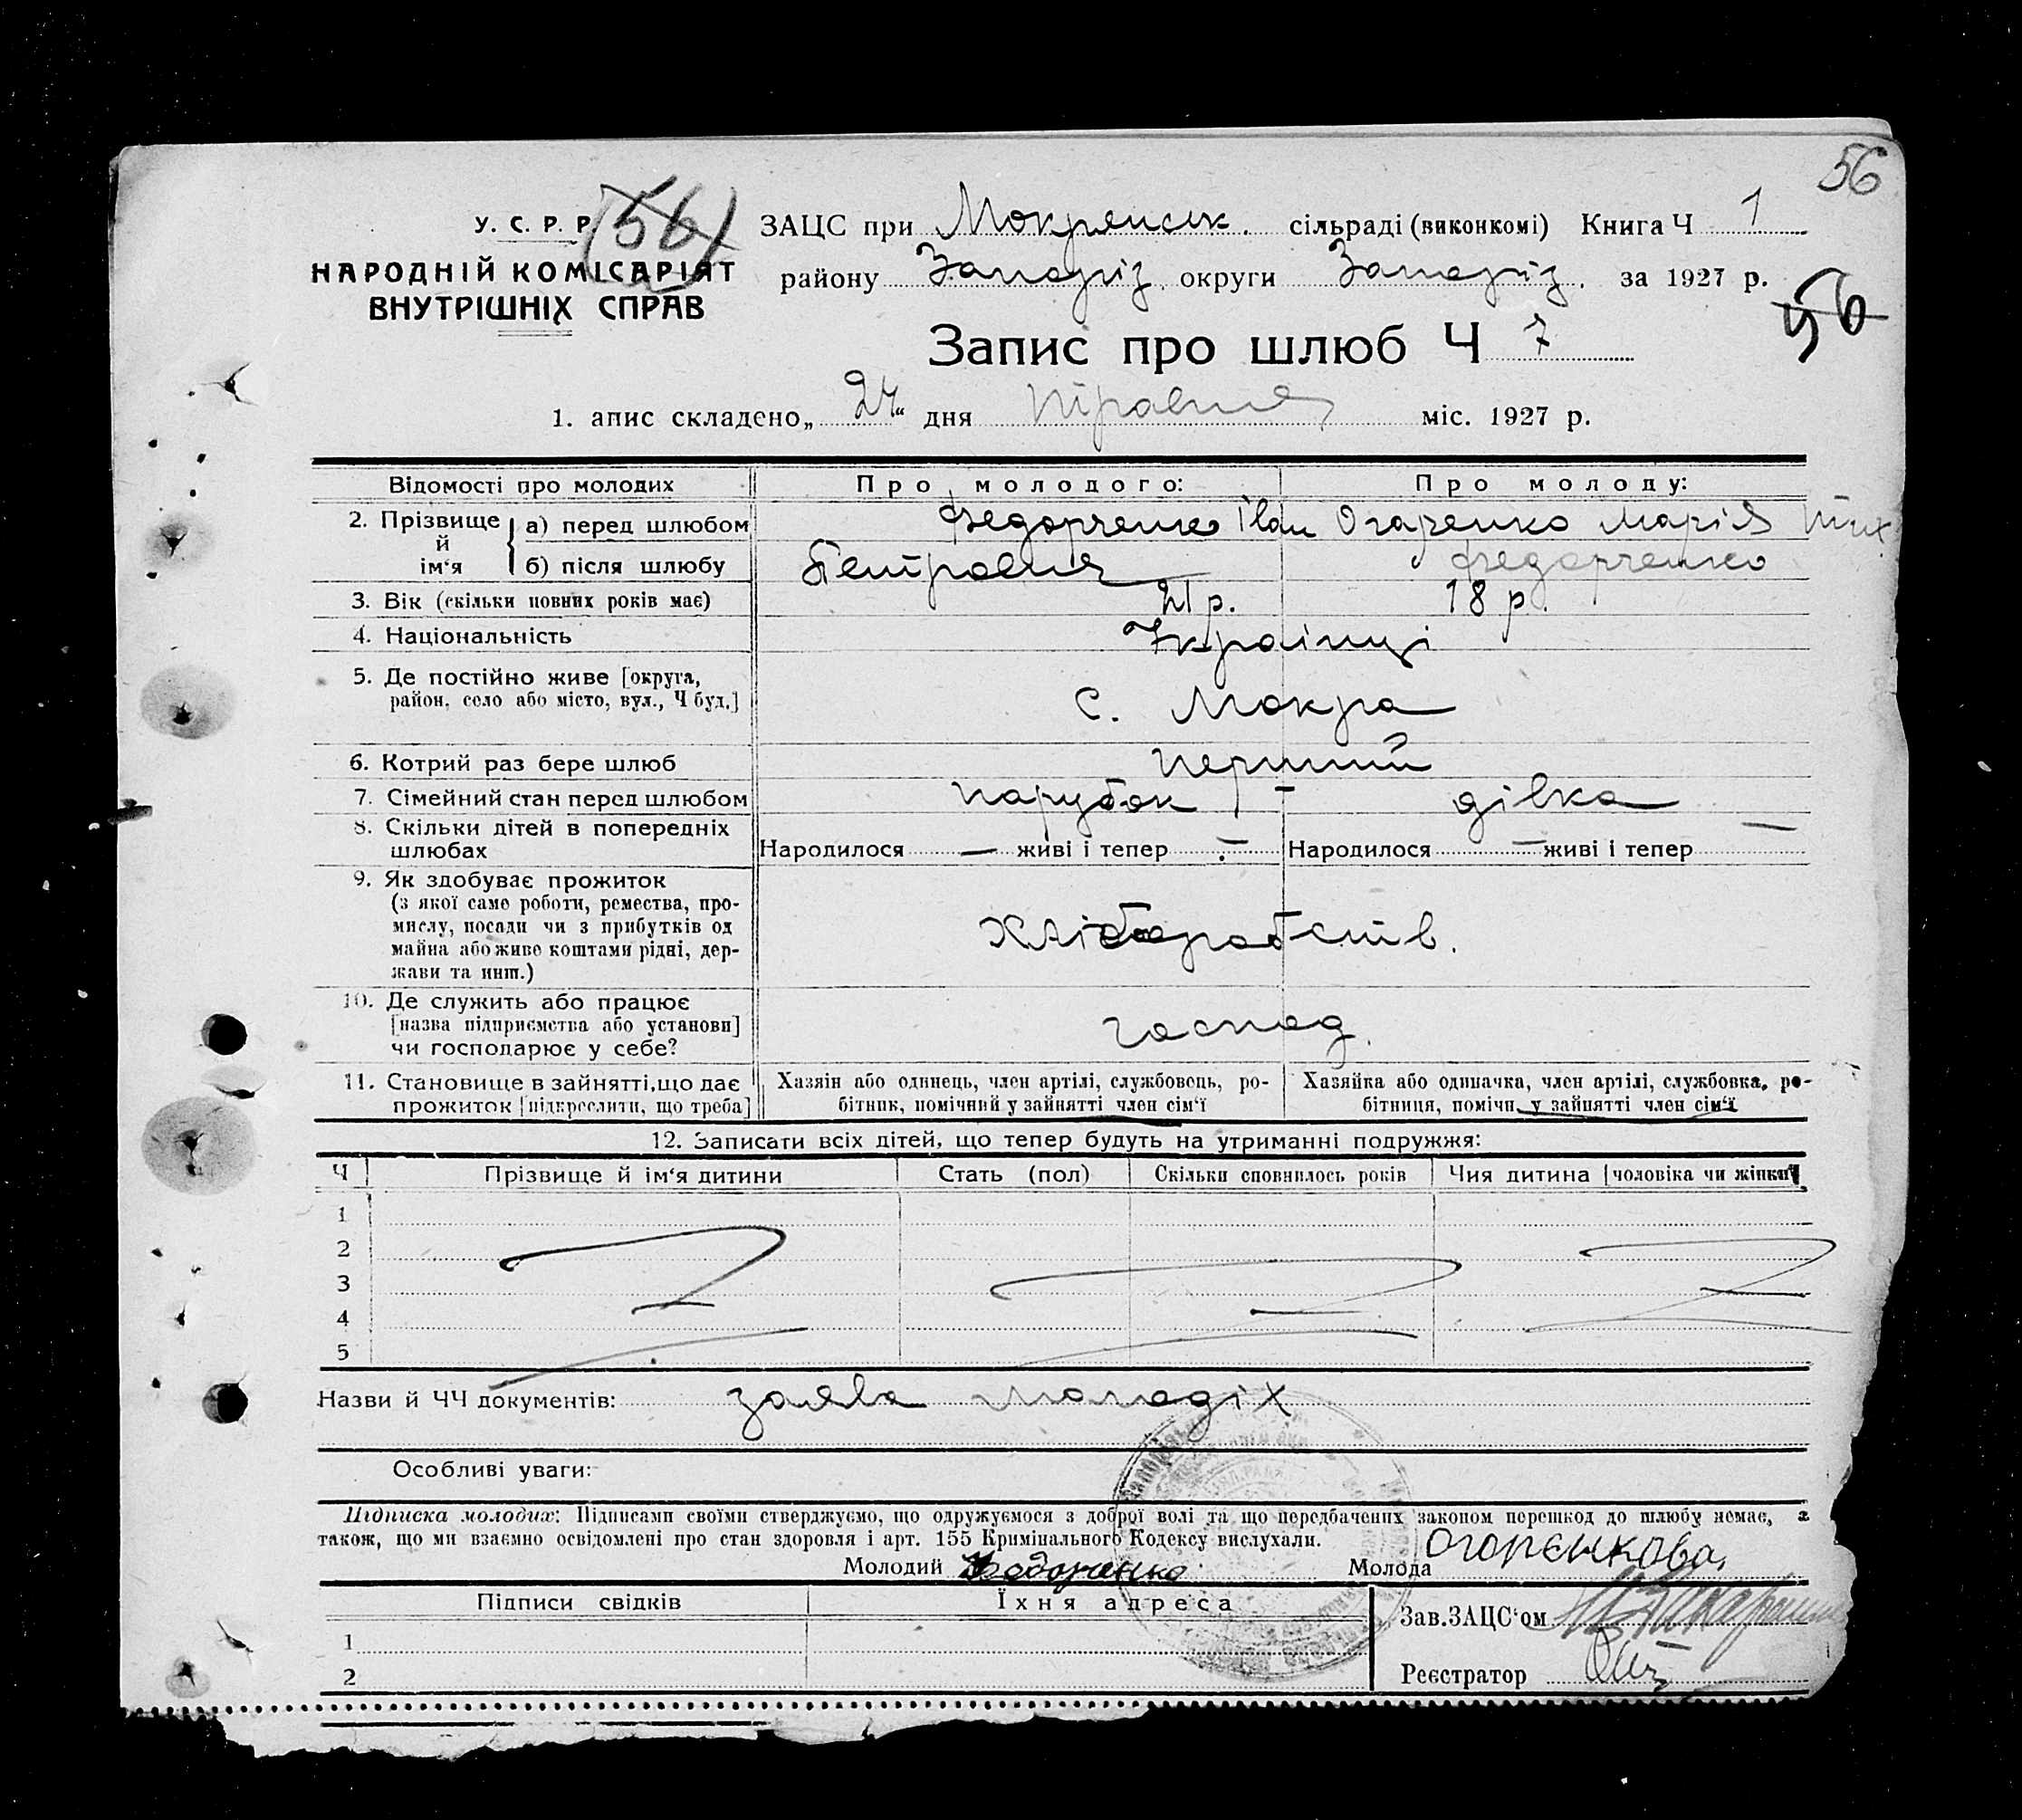 56
У. С. Р. Р. (56)
НАРОДНІЙ КОМІСАРІЯТ
ВНУТРІШНІХ СПРАВ
ЗАЦС при Мокрянськ. сільраді (виконкомі) Книга Ч 1
району Запоріз. округи Запоріз. за 1927 р.
56
Запис про шлюб Ч 7
1. апис складено „24“ дня травня міс. 1927 р.
Відомості про молодих Про молодого: Про молоду:
2. Прізвище й ім‘я
а) перед шлюбом Федорченко Іван Огаренко Марія Тих
б) після шлюбу Петрович Федорченко
3. Вік (скільки повних років має) 21 р. 18 р.
4. Національність Українці
5. Де постійно живе [округа,
район, село або місто, вул., Ч буд.] с. Мокра
6. Котрий раз бере шлюб перший
7. Сімейний стан перед шлюбом парубок дівка
8. Скільки дітей в попередніх
шлюбах Народилося — живі і тепер — Народилося — живі і тепер —
9. Як здобуває прожиток
(з якої саме роботи, ремества, про-
мислу, посади чи з прибутків од
майна або живе коштами рідні, дер-
жави та инш.) хліборобств.
10. Де служить або працює
[назва підприємства або установи]
чи господарює у себе? господ.
11. Становище в зайнятті, що дає
прожиток [підкреслити, що треба]
Хазяїн або одинець, член артілі, службовець, ро-
бітник, помічний у зайнятті член сім‘ї
Хазяйка або одиначка, член артілі, службовка, ро-
бітниця, помічн. у зайнятті член сім‘ї
12. Записати всіх дітей, що тепер будуть на утриманні подружжя:
Ч Прізвище й ім‘я дитини Стать (пол) Скільки сповнилось років Чия дитина [чоловіка чи жінки]
1
2
3
4
5
Назви й ЧЧ документів: заява молодіх
Особливі уваги:
Підписка молодих: Підписами своїми стверджуємо, що одружуємося з доброї волі та що передбачених законом перешкод до шлюбу немає, а
також, що ми взаємно освідомлені про стан здоровля і арт. 155 Кримінального Кодексу вислухали.
Молодий Федорченко Молода Огорєнкова
Підписи свідків Їхня адреса
Зав.ЗАЦС‘ом
1
Реєстратор
2